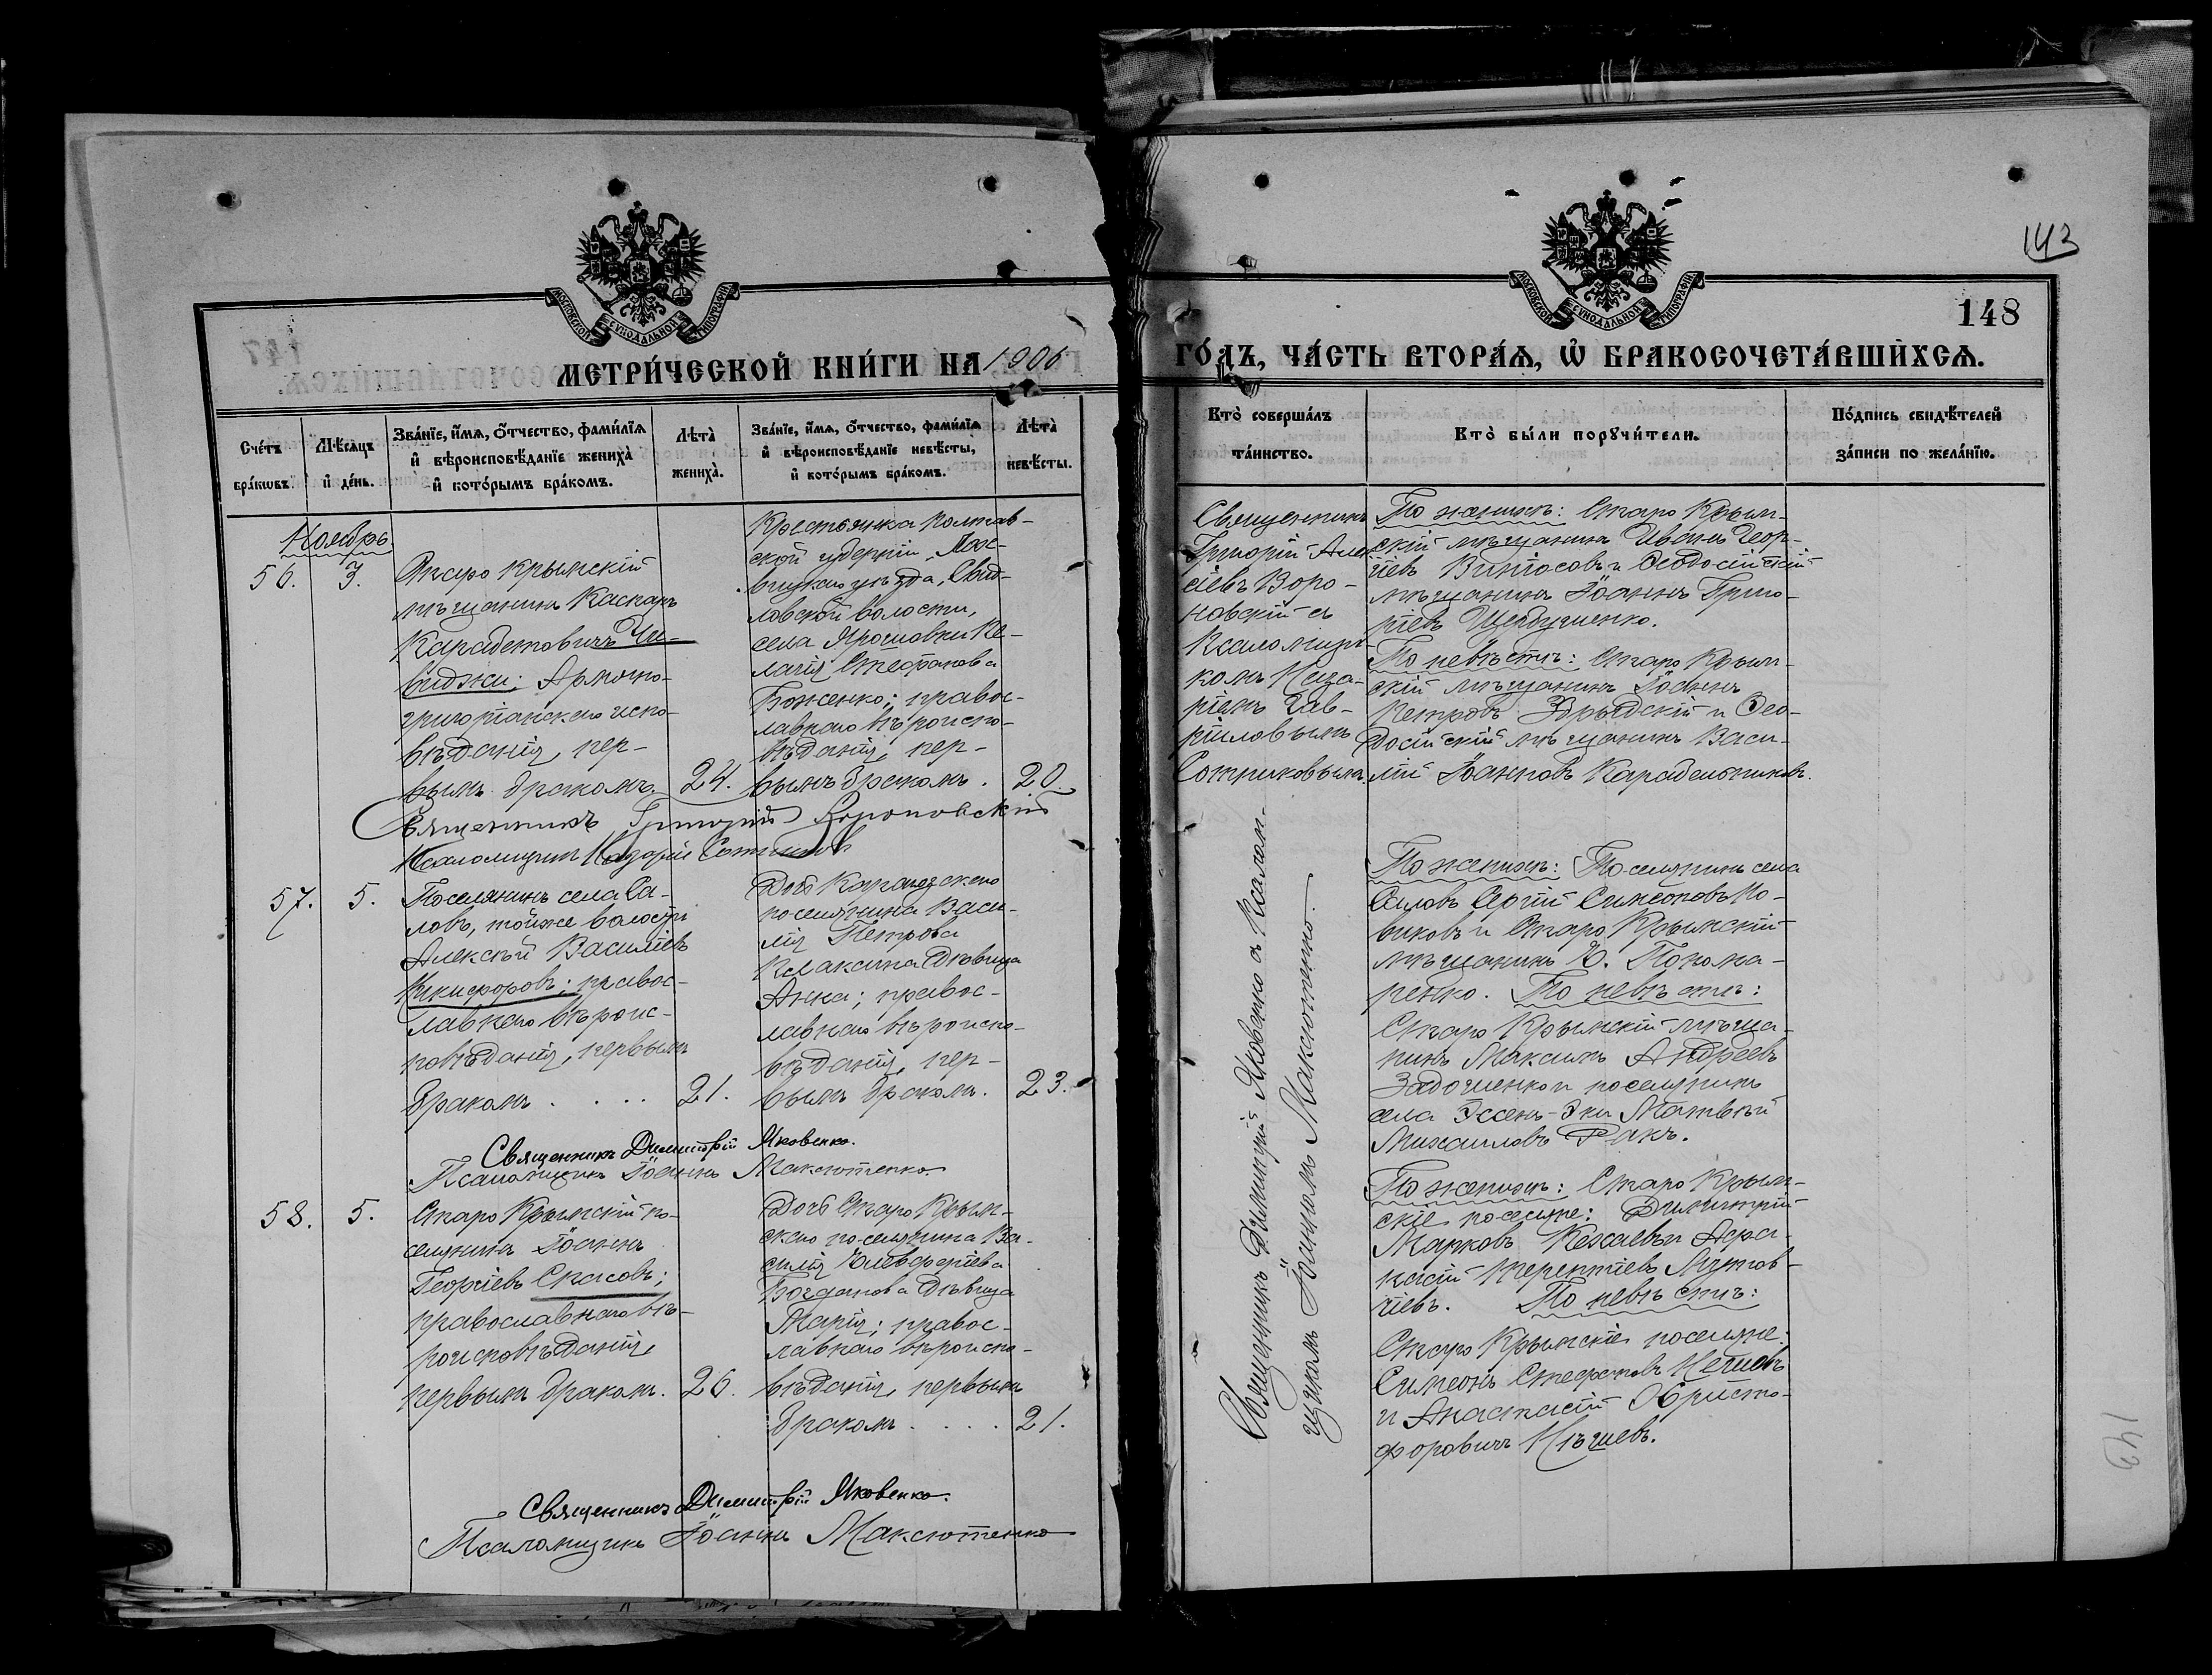 143
148
МОСКОВСКОЙ СѴНОДАЛЬНОЙ ТИПОГРАФІИ
МОСКОВСКОЙ СѴНОДАЛЬНОЙ ТИПОГРАФІИ
МЕТРИ́ЧЕСКОЙ КНИ́ГИ НА 1906 ГО́ДЪ, ЧА́СТЬ ВТОРА́Ѧ, Ѡ БРАКОСОЧЕТА́ВШИХСѦ.
Сче́тъ бра́кѡвъ.
Мѣ́сѧцъ и де́нь.
Зва́нїе, и́мѧ, ѻ́тчество, фами́лїѧ и вѣроисповѣ́данїе жениха̀ и кото́рымъ бра́комъ.
Лѣта̀ жениха̀.
Зва́нїе, и́мѧ, ѻ́тчество, фами́лїѧ и вѣроисповѣ́данїе невѣ́сты, и кото́рымъ бра́комъ.
Лѣта̀ невѣ́сты.
Кто̀ соверша́лъ та́инство.
Кто̀ бы́ли порꙋчи́тели.
По́дпись свидѣ́телей за́писи по жела́нїю.
Ноябрь
56.
3.
Старо Крымскій
мѣщанинъ Каспаръ
Карабетовичъ Чи-
виджи; Армяно-
григоріанскаго испо-
вѣданія, пер-
вымъ бракомъ
24.
Крестьянка Полтав-
ской губерніи,
уѣзда,
ловской волости,
села Ярошовки Пе-
лагія Стефанова
Боженко; правос-
лавнаго вѣроиспо-
вѣданія, пер-
вымъ бракомъ.
20.
Священникъ
Григорій Алек-
сіевъ Воро-
новскій съ
Псаломщи-
комъ Наза-
ріемъ Гав-
ріиловымъ
По женихѣ: Старо Крым-
скій мѣщанинъ Иванъ Геор-
гіевъ и Ѳеодосійскій
мѣщанинъ Іоаннъ Григо-
ріевъ
По невѣстѣ: Старо Крым-
скій мѣщанинъ Іоаннъ
Петровъ и Ѳео-
досійскій мѣщанинъ Васи-
лій Іоанновъ
Священникъ Григорій Вороновскій
Псаломщикъ Назарій
57.
5.
Поселянинъ села Са-
ловъ, тойже волости
Алексѣй Василіевъ
Никифоровъ; правос-
лавнаго вѣроис-
повѣданія, первымъ
бракомъ . . . .
21.
Дочь
поселянина Васи-
лія Петрова
Клаксина дѣвица
Анна; правос-
лавнаго вѣроиспо-
вѣданія, пер-
вымъ бракомъ.
23.
Священникъ Димитрій Яковенко съ Псалом-
щикомъ Іоанномъ Максютенко.
По женихѣ: Поселянинъ села
Саловъ Сергій Симеоновъ Но-
виковъ и Старо Крымскій
мѣщанинъ Понома-
ренко. По невѣстѣ:
Старо Крымскій мѣща-
нинъ Максимъ Андреевъ
и поселянинъ
села Эссенъ-Эки Матвѣй
Михаиловъ Ракъ.
Священникъ Димитрій Яковенко.
Псаломщикъ Іоаннъ Максютенко
58.
5.
Старо Крымскій по-
селянинъ Іоаннъ
Георгіевъ Спасовъ;
православнаго вѣ-
роисповѣданія,
первымъ бракомъ.
26.
Дочь Старо Крым-
скаго поселянина Ва-
силія Елевферіева
Богданова дѣвица
Марія; правос-
лавнаго вѣроиспо-
вѣданія, первымъ
бракомъ . . . .
21.
По женихѣ: Старо Крым-
скіе поселяне: Димитрій
Марковъ и Аѳа-
насій Терентіевъ
По невѣстѣ:
Старо Крымскіе поселяне:
Симеонъ Стефановъ
и Анастасій Христо-
форовичъ
Священникъ Димитрій Яковенко.
Псаломщикъ Іоаннъ Максютенко
143